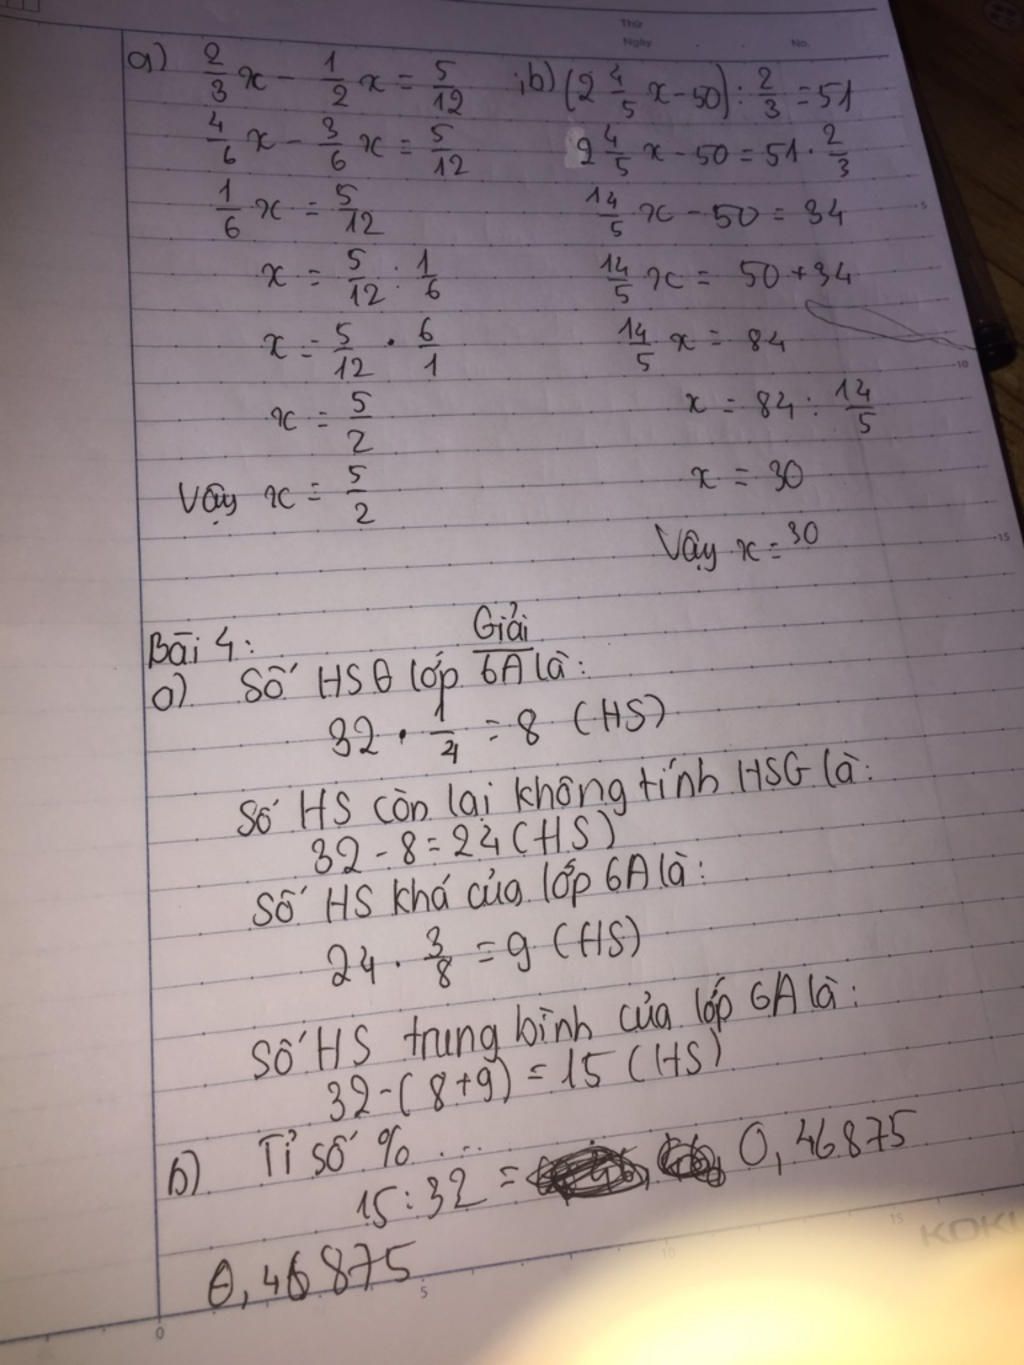 Thứ
Ngày
No.
a) 2/3 x - 1/2 x = 5/12
4/6 x - 3/6 x = 5/12
1/6 x = 5/12
x = 5/12 : 1/6
x = 5/12 . 6/1
x = 5/2
Vậy x = 5/2
; b) (2 4/5 x - 50) : 2/3 = 51
2 4/5 x - 50 = 51 . 2/3
14/5 x - 50 = 34
14/5 x = 50 + 34
14/5 x = 84
x = 84 : 14/5
x = 30
Vậy x = 30
Bài 4:
Giải
a) Số HSG lớp 6A là:
32 . 1/4 = 8 (HS)
Số HS còn lại không tính HSG là:
32 - 8 = 24 (HS)
Số HS khá của lớp 6A là:
24 . 3/8 = 9 (HS)
Số HS trung bình của lớp 6A là:
32 - (8 + 9) = 15 (HS)
b) Tỉ số % ...
15 : 32 = 0,46875
0,46875
5
10
15
0
5
10
15